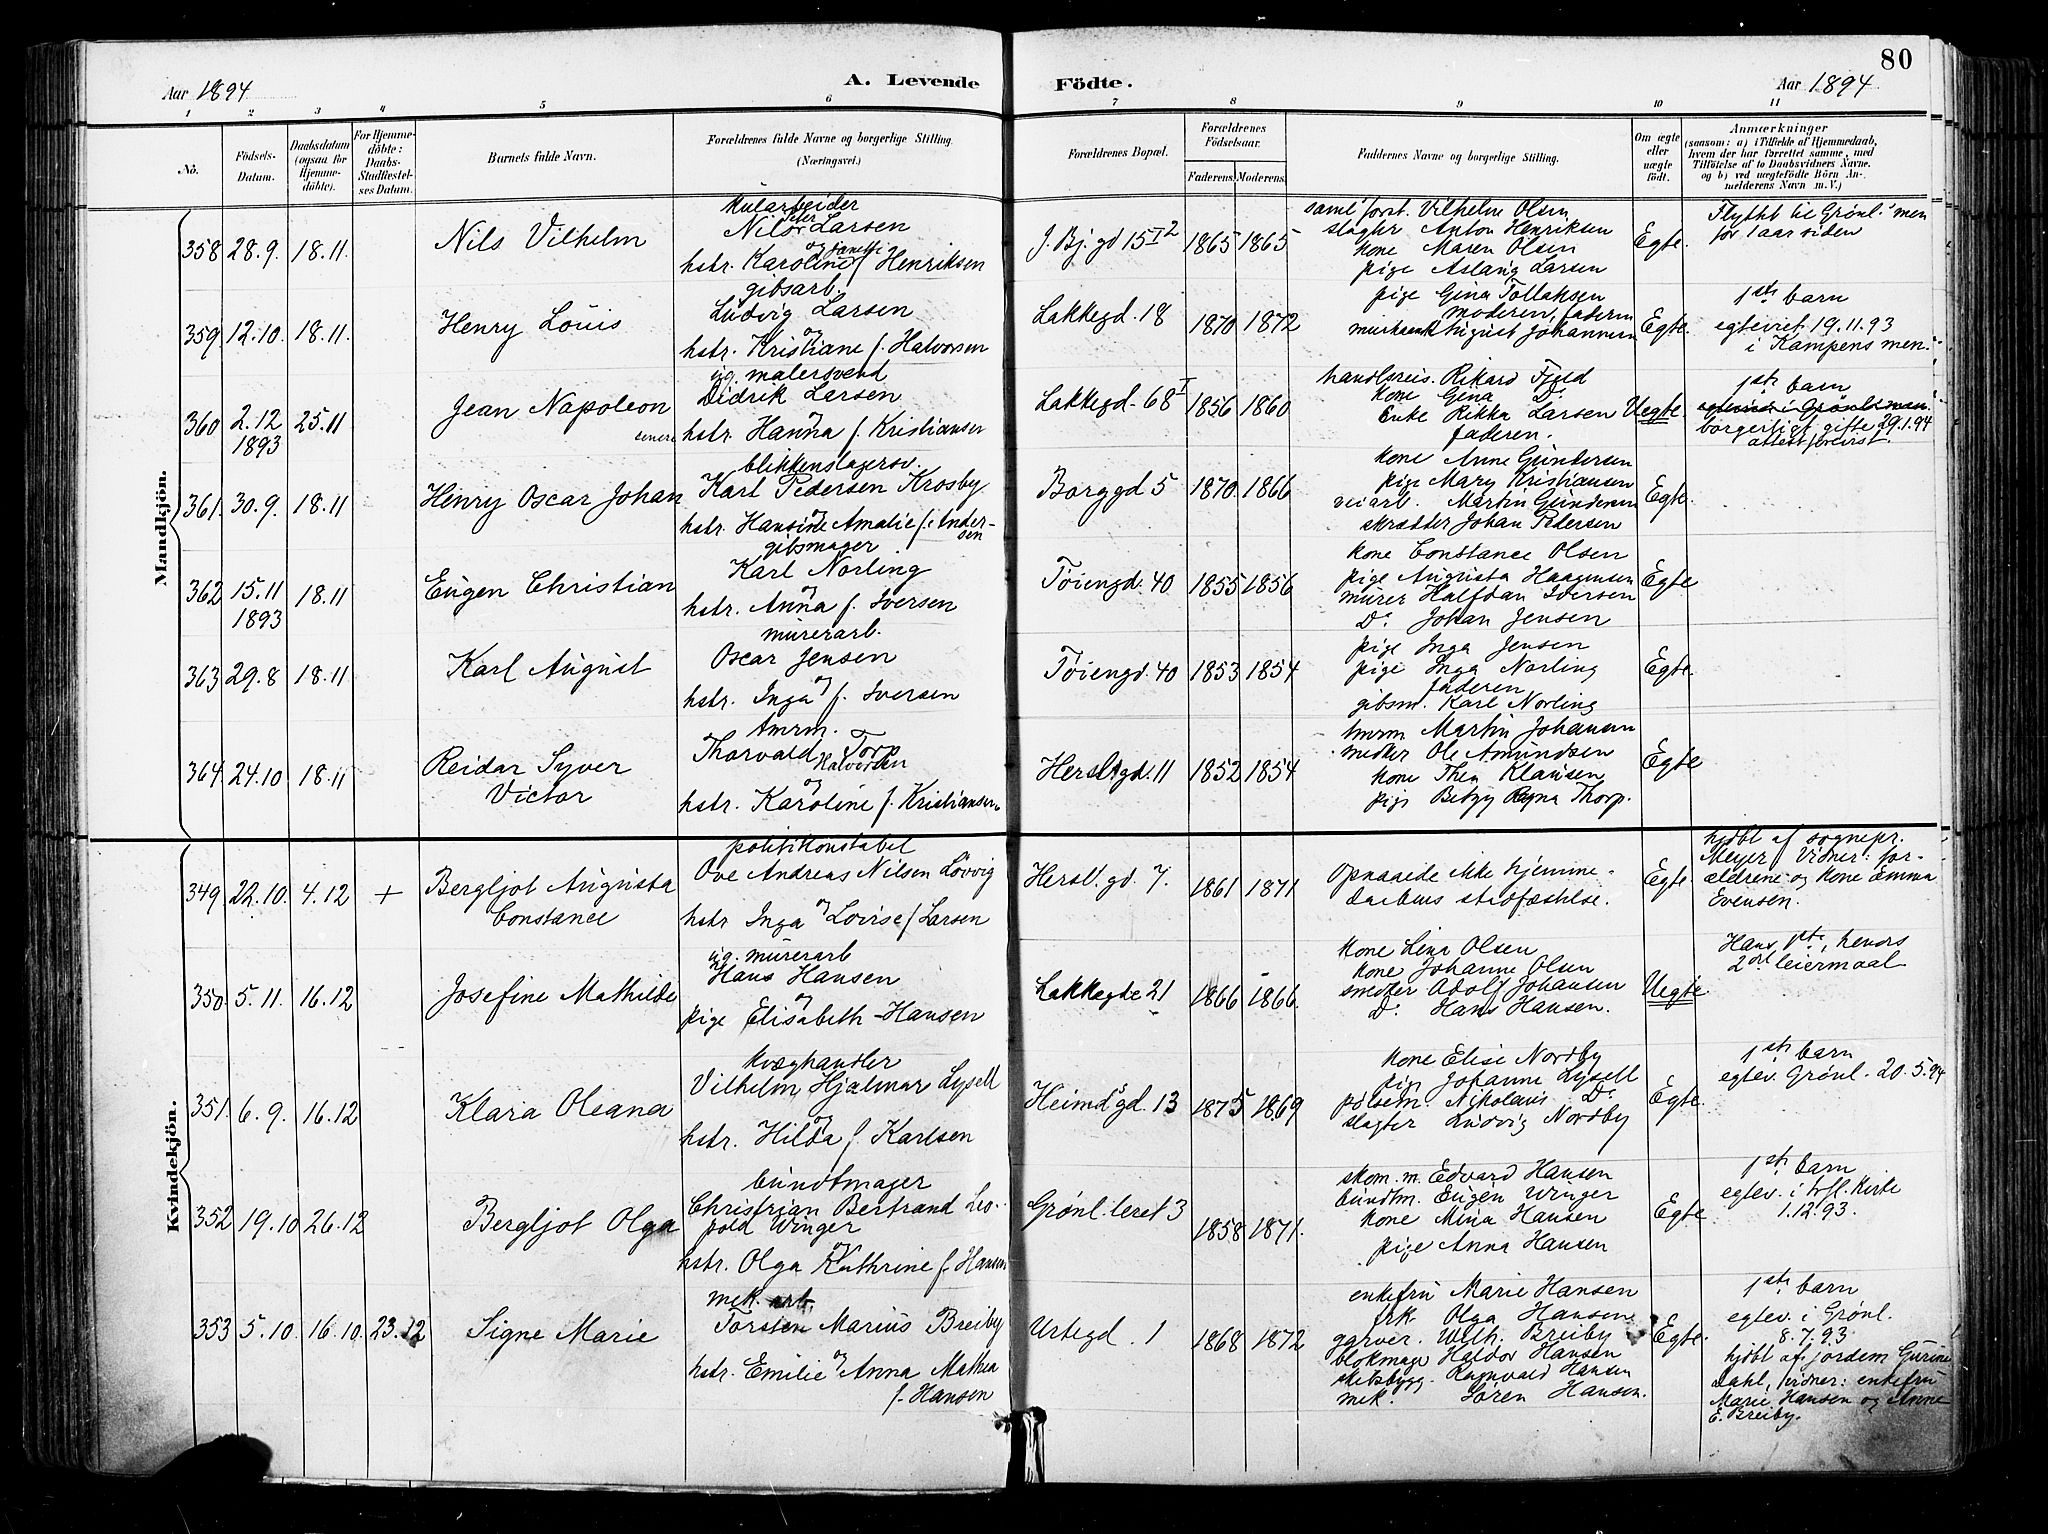 80
Aar 1894
A. Levende
Födte.
Aar 1894.
1 2 3 4 5 6 7 8 9 10 11
No.
Födsels-
Datum.
Daabsdatum
(ogsaa for
Hjemme-
döbte).
For Hjemme-
döbte:
Daabs-
Stadfæstel-
ses Datum.
Barnets fulde Navn.
Forældrenes fulde Navne og borgerlige Stilling.
(Næringsvei.)
Forældrenes Bopæl.
Forældrenes
Födselsaar.
Faderens. Moderens.
Faddernes Navne og borgerlige Stilling.
Om ægte
eller
uægte
födt.
Anmærkninger
(saasom: a) i Tilfælde af Hjemmedaab,
hvem der har forrettet samme, med
Tilföielse af to Daabsvidners Navne.
og b) ved uægtefödte Börn An-
melderens Navn m. V.)
Mandkjön.
358 28.9. 18.11. Nils Vilhelm
Kularbeider
Nils Peter Larsen
og
hstr. Karoline Danette f. Henriksen
J. Bj. gd 15 I 2 1865 1865
forst. Vilhelm Olsen
slagter Anton Henriksen
kone Maren Olsen
pige Aslaug Larsen
Egte.
Flyttet til Grönl. men
for 1 aar siden
359 12.10. 18.11. Henry Louis
gibsarb.
Ludvig Larsen
og
hstr. Kristiane f. Halvorsen
Lakkegd. 18 1870 1872
pige Gina Tollaksen
moderen, faderen
August Johannesen
Egte.
1ste barn
egteviet 19.11.93
i Kampens men.
360 2.12 1893 25.11 Jean Napoleon
senere
ug. malersvend
Didrik Larsen
og
hstr. Hanna f. Kristiansen
Lakkegd. 68 I 1856 1860
handelsreis. Rikard Fjeld
kone Gina Do.
Enke Rikka Larsen
faderen.
Uegte.
1ste barn
egteviet i Grönlsmen.
borgerligt gifte 29.1.94
attest forevist.
361. 30.9. 18.11 Henry Oscar Johan
blikkenslagersv.
Karl Pedersen Krosby
og
hstr. Hansine Amalie f. Ander-
sen
Borggd 5 1870 1866
kone Anne Gundersen
pige Mary Kristiansen
veiarb. Martin Gundersen
skrædder Johan Pedersen
Egte
362 15.11 1893 18.11 Eugen Christian
gibsmager
Karl Norling
og
hstr. Anna f. Iversen
Töiengd. 40 1855 1856
kone Constance Olsen
pige Augusta Haagensen
murer Halfdan Iversen
Do. Johan Jensen
Egte
363 29.8 18.11 Karl August
murerarb.
Oscar Jensen
og
hstr. Inga f. Iversen
Töiengd. 40 1853 1854
pige Inga Jensen
pige Inga Norling
faderen
gibsm. Karl Norling
Egte.
364 24.10 18.11 Reidar Syver
Victor
tmrm.
Thorvald Halvorsen Torp
og
hstr. Karoline f. Kristiansen
Herslbgd. 11 1852 1854
tmrm Martin Johansen
snedker Ole Amundsen
kone Thea Klausen
pige Betzy Ragna Thorp.
Egte
Kvindekjön.
349 22.10. 4.12 + Bergljot Augusta
Constance
politikonstabel
Ove Andreas Nilsen Lövvig
og
hstr Inga Lovise f. Larsen
Hersl. gd. 7. 1861 1871
Opnaaede ikke hjemme-
daabens stadfæstelse.
Egte
hjdbt af sognepr.
Meyer Vidner: for-
ældrene og kone Emma
Evensen.
350 5.11. 16.12 Josefine Mathilde
ug. murerarb
Hans Hansen
og
pige Elisabeth Hansen
Lakkegte 21 1866 1866
kone Lina Olsen
kone Johanne Olsen
snedker Adolf Johansen
Do. Hans Hansen.
Uegte
Hans 1ste, hendes
2det leiermaal
351. 6.9. 16.12 Klara Oleana
kvæghandler
Vilhelm Hjalmar Lysell
og
hstr. Hilda f. Karlsen
Heimdgd. 13 1875 1869
kone Elise Nordby
pige Johanne Lysell
pölsem. Nikolaus Do.
slagter Ludvig Nordby
Egte.
1ste barn
egtev. Grönl. 20.5.94
352 19.10 26.12 Bergljot Olga
bundtmager
Christian Bertrand Leo-
pold Winger
og
hstr. Olga Kathrine f. Hansen
Grönl. leret 3 1858 1871.
skom. m. Edvard Hansen
bundtm. Eugen Winger
kone Mina Hansen
pige Anna Hansen
Egte
1ste barn
egtev. i trfl. kirke
1.12.93.
353 5.10. 16.10. 23.12 Signe Marie
mek. arb.
Torsten Marius Breiby
og
hstr. Emilie Anna Mathea
f. Hansen
Urtegd. 1 1868 1872
enkefru Marie Hansen
frk. Olga Hansen
garver. Wilh. Breiby
blokmager Haldor Hansen
skibsbygg. Ragnvald Hansen
mek. Sören Hansen.
Egte.
1ste barn
egtev. i Grönl.
8.7.93
hjdbt af jordem. Gurine
Dahl, vidner: enkefru
Marie Hansen og Anne
E. Breiby.